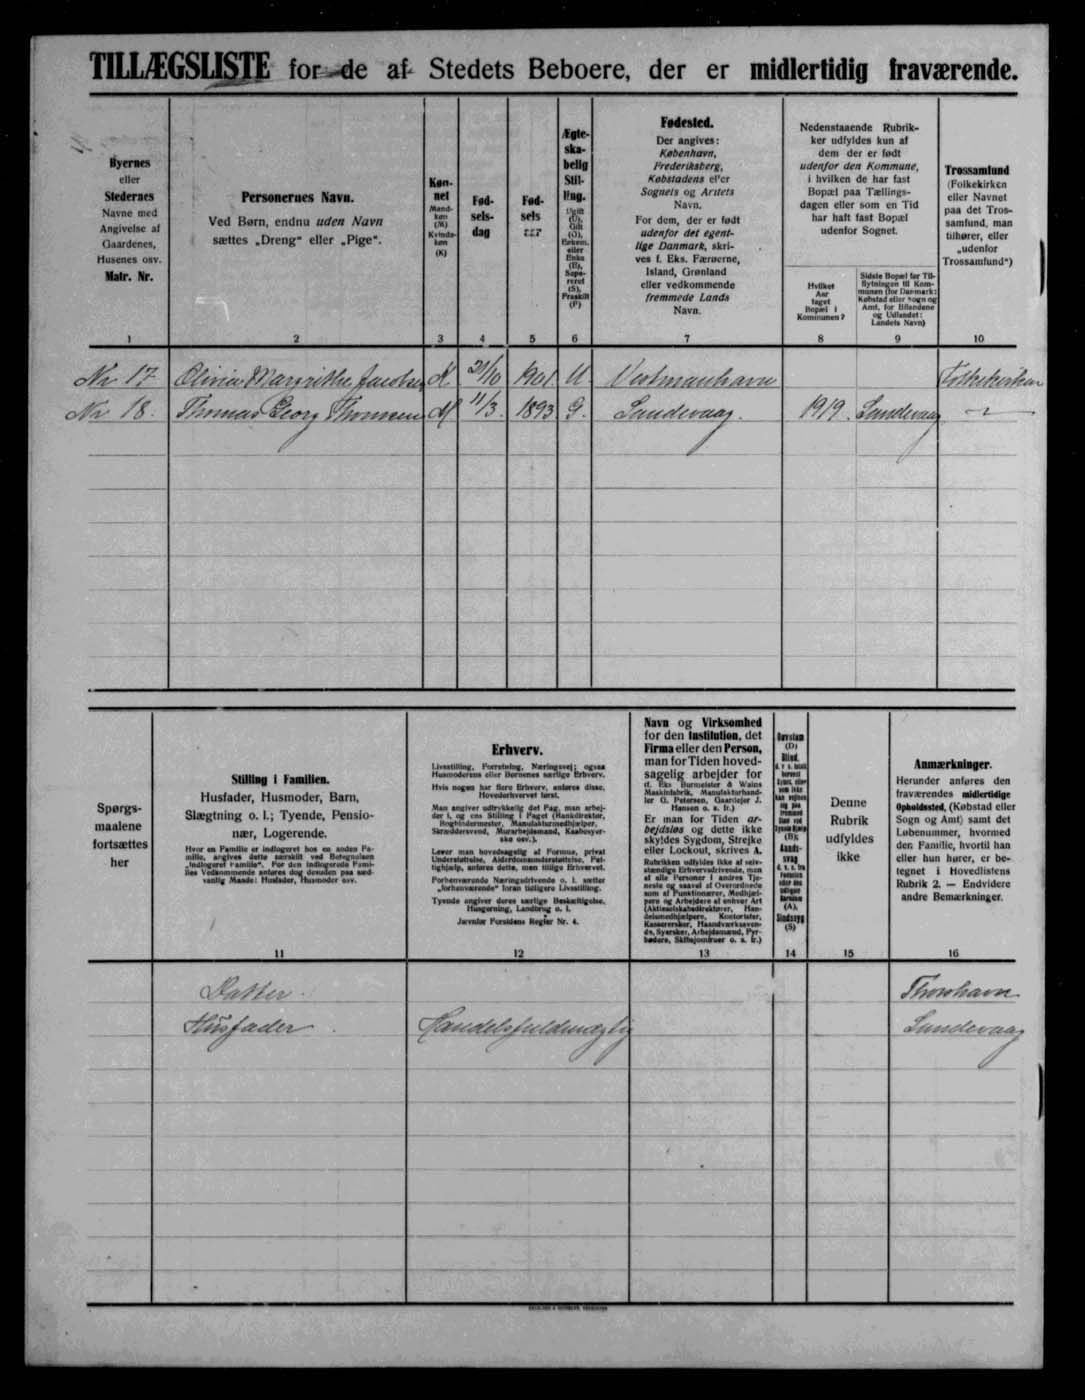 TILLÆGSLISTE for de af Stedets Beboere, der er midlertidig fraværende.
Byernes
eller
Stedernes
Navne med
Angivelse af
Gaardenes,
Husenes osv.
Matr. Nr.
1
Personernes Navn.
Ved Børn, endnu uden Navn
sættes „Dreng“ eller „Pige“.
2
Køn-
net
Mand-
køn
(M)
Kvinde-
køn
(K)
3
Fød-
sels-
dag
4
Fød-
sels
5
Ægte-
ska-
belig
Stil-
ling.
Ugift
(U),
Gift
(G),
Enkem.
eller
Enke
(E),
Sepa-
reret
(S),
Fraskilt
(F)
6
Fødested.
Der angives:
København,
Frederiksberg,
Købstadens eller
Sognets og Amtets
Navn.
For dem, der er født
udenfor det egent-
lige Danmark, skri-
ves f. Eks. Færøerne,
Island, Grønland
eller vedkommende
fremmede Lands
Navn.
7
Nedenstaaende Rubrik-
ker udfyldes kun af
dem der er født
udenfor den Kommune,
i hvilken de har fast
Bopæl paa Tællings-
dagen eller som en Tid
har haft fast Bopæl
udenfor Sognet.
Hvilket
Aar
taget
Bopæl i
Kommunen?
8
Sidste Bopæl før Til-
flytningen til Kom-
munen (for Danmark:
Købstad eller Sogn og
Amt, for Bilandene
og Udlandet:
Landets Navn)
9
Trossamfund
(Folkekirken
eller Navnet
paa det Tros-
samfund, man
tilhører, eller
„udenfor
Trossamfund“)
10
Nr 17. Olivia Margrithe Jacobsen K 21/10 1901. U. Vestmanhavn Folkekirken
Nr 18. Thomas Georg Thomsen M 11/3. 1893. G. Sandevaag. 1919. Sandevaag -"-
Spørgs-
maalene
fortsættes
her
Stilling i Familien.
Husfader, Husmoder, Barn,
Slægtning o. l.; Tyende, Pensio-
nær, Logerende.
Hvor en Familie er indlogeret hos en anden Fa-
milie, angives dette særskilt ved Betegnelsen
„Indlogeret Familie“. For den indlogerede Fami-
lies Vedkommende anføres dog desuden paa sæd-
vanlig Maade: Husfader, Husmoder osv.
11
Erhverv.
Livsstilling, Forretning, Næringsvej; ogsaa
Husmoderens eller Børnenes særlige Erhverv.
Hvis nogen har flere Erhverv, anføres disse,
Hovederhvervet først.
Man angiver udtrykkelig det Fag, man arbej-
der i, og ens Stilling i Faget (Bankdirektør,
Bogbindermester, Manufakturmedhjælper,
Skræddersvend, Murarbejdsmand, Kasbesyer-
ske osv.).
Lever man hovedsagelig af Formue, privat
Understøttelse, Alderdomsunderstøttelse, Fat-
tighjælp, anføres dette, men tillige Erhvervet.
Forhenværende Næringsdrivende o. l. sætter
„forhenværende“ foran tidligere Livsstilling.
Tyende angiver deres særlige Beskæftigelse,
Husgerning, Landbrug o. l.
Jævnfør Forsidens Regler Nr. 4.
12
Navn og Virksomhed
for den Institution, det
Firma eller den Person,
man for Tiden hoved-
sagelig arbejder for
(f. Eks Burmeister & Wains
Maskinfabrik, Manufakturhand-
ler O. Petersen, Gaardejer J.
Hansen o. s. fr.)
Er man for Tiden ar-
bejdsløs og dette ikke
skyldes Sygdom, Strejke
eller Lockout, skrives A.
Rubrikken udfyldes ikke af selv-
stændige Erhvervsdrivende, men
af alle Personer i andres Tje-
neste og saavel af Overordnede
som af Funktionærer, Medhjæl-
pere og Arbejdere af enhver Art
(Aktieselskabsdirektører, Han-
delsmedhjælpere, Kontorister,
Kassererskér, Haandværkssven-
de, Syersker, Arbejdsmænd, Fyr-
bødere, Skibsjomfruer o. s. fr.)
13
Døvstum
(D)
Blind,
(B),
Aands-
svag
(A),
Sindssyg
(S)
14
Denne
Rubrik
udfyldes
ikke
15
Anmærkninger.
Herunder anføres den
fraværendes midlertidige
Opholdssted, (Købstad eller
Sogn og Amt) samt det
Løbenummer, hvormed
den Familie, hvortil han
eller hun hører, er be-
tegnet i Hovedlistens
Rubrik 2. — Endvidere
andre Bemærkninger.
16
Datter. Thorshavn
Husfader Handelsfuldmægtig Sandevaag